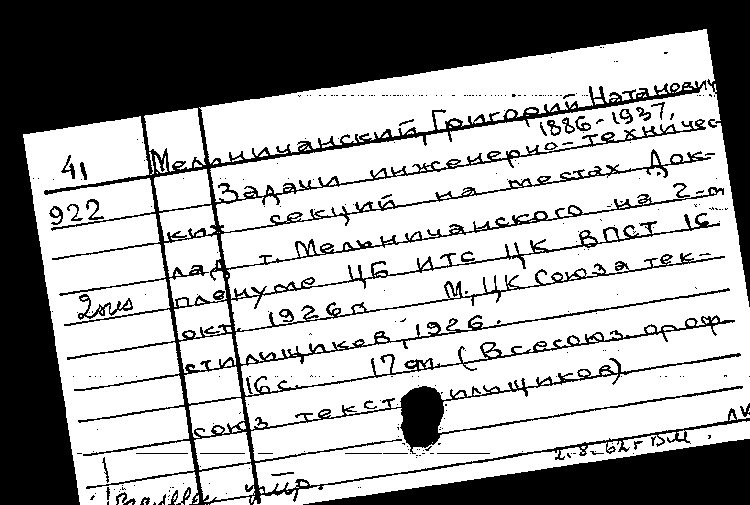 41 Мельничанский, Григорий Натанович
1886-1937.
Задачи инженерно-техничес-
922 ких секций на местах Док-
лад т. Мельничанского на 2-м
2 экз пленуме ЦБ ИТС ЦК ВПСТ 16
окт. 1926 г. М., ЦК Союза тек-
стильщиков, 1926.
16 с. 17 см. (Всесоюз. проф.
союз текстильщиков)
2.8.62 г.